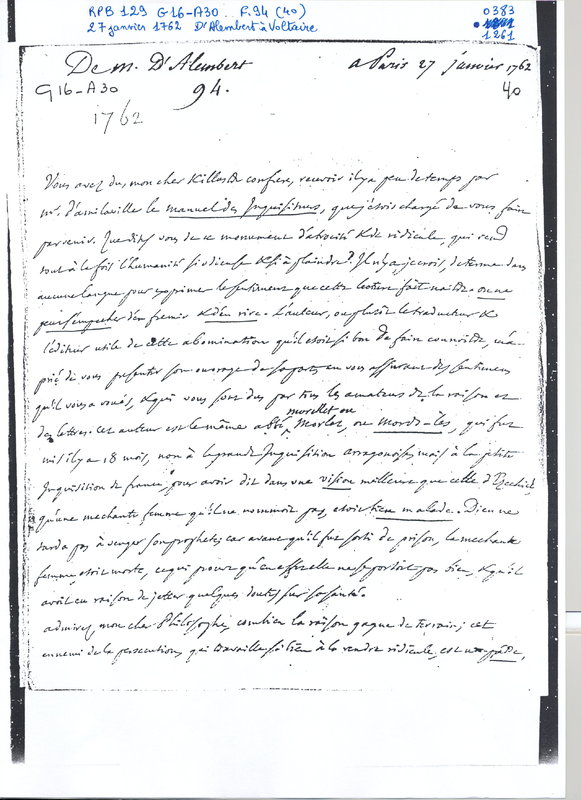 RPB 129 G16-A30 F.94 (40)
27 janvier 1762 Dr Alembert à Voltaire
0383
1261
De m. D'Alembert
a Paris 27 janvier 1762
G16-A30
94.
40
1762
Vous avez du, mon cher & illustre confrere, recevoir il y a peu de temps par
mr. d'amilaville le manuel des Inquisiteurs, que j'etois chargé de vous faire
parvenir. Que dites vous de ce monument d'atrocité & de ridicule, qui rend
tout à la fois l'humanité si odieuse & si à plaindre? Il n'y a, je crois, de terme dans
aucune langue pour exprimer le sentiment que cette lecture fait naitre. on ne
peut s'empecher d'en fremir & d'en rire. L'auteur, ou plutôt le traducteur &
l'éditeur utile de cette abomination qu'il etoit si bon de faire connoitre, m'a
prié de vous presenter son ouvrage de sa part, en vous assurant des sentimens
qu'il vous a voués, & qui vous sont dus par tous les amateurs de la raison et
des lettres. cet auteur est le même abbé
morellet ou
Morlet, ou mords-les, qui fut
mis il y a 18 mois, non à la grande Inquisition arragonoise, mais à la petite
Inquisition de france, pour avoir dit dans une vision meilleure que celle d'Ezechiel,
qu'une mechante femme qu'il ne nommoit pas, etoit bien malade. Dieu ne
tarda pas à venger son prophete; car avant qu'il fut sorti de prison, la mechante
femme etoit morte, ce qui prouve qu'en effet elle ne se portoit pas bien, & qu'il
avoit eu raison de jetter quelques doutes sur sa santé.
admirez, mon cher Philosophe, combien la raison gagne de terrain; cet
ennemi de la persecution, qui travaille si bien à la rendre ridicule, est un prêtre,